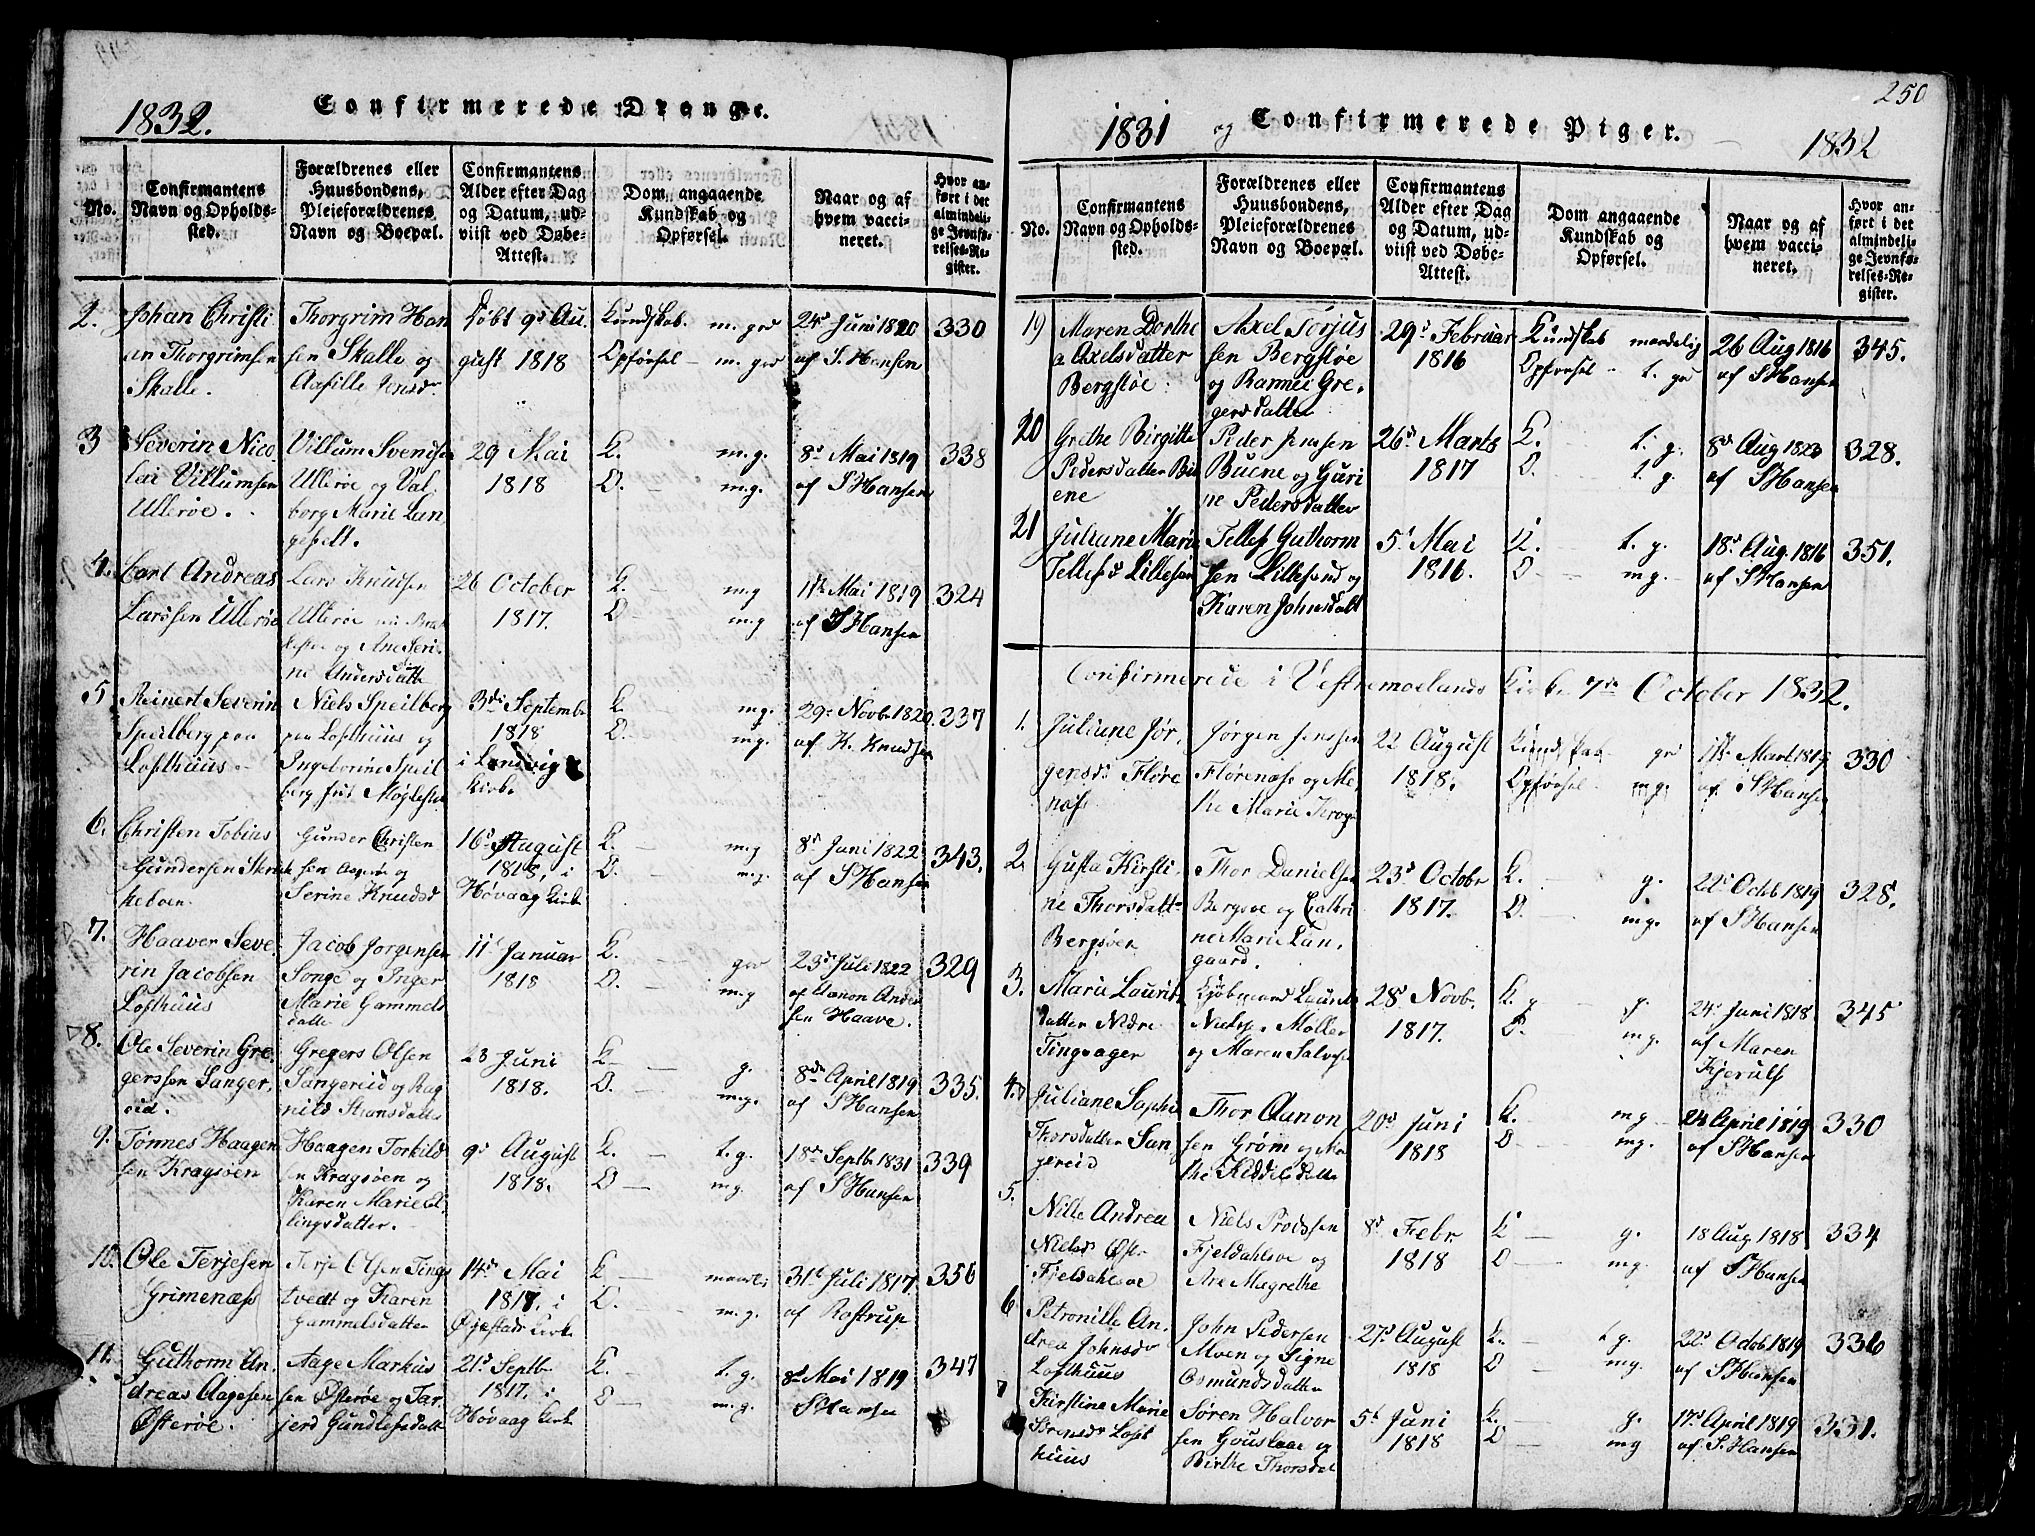 1832.
Confirmerede Drenge.
No.
Confirmantens
Navn og Opholds-
sted.
Forældrenes eller
Huusbondens,
Pleieforældrenes
Navn og Boepæl.
Confirmantens
Alder efter Dag
og Datum, ud-
viist ved Døbe-
Attest.
Dom angaaende
Kundskab og
Opførsel.
Naar og af
hvem vacci-
neret.
Hvor an-
ført i det
almindeli-
ge Jevnfø-
relses-Re-
gister.
2.
Johan Christi
an Thorgrimsen
Skalle.
Thorgrim Han
sen Skalle og
Døbt 9d Au
gust 1818
Kundskab. m. gdr
Opførsel - m. gdr
24d Juni 1820
af S. Hansen
330
3
Severin Nico
lai Villumsen
Ullerøe.
Villum Svendsen
Ullerøe og Val-
borg Marie Lan
gefelt.
29 Mai
1818
K. m.g.
O. m.g.
8d Mai 1819
af S Hansen
338
4.
Carl Andreas
Larssen Ullerøe
Lars Knudsen
Ullerøe
og Ane Seri-
ne Andersdatte
26 October
1817.
K. m.g
O m.g
11te Mai 1819
af S Hansen
324
5
Reinert Severin
Speilberg paa
Lofthuus
Niels Speilberg
paa Lofthuus og
Ingeborine Speil
berg
3die Septembr
1818
i Landvig
Kirke
K. m.g.
O. m.g.
29e Novbr 1820.
af K. Knudsen
337
6.
Christen Tobias
Gundersen
Gunder Christen
sen og
Serine Knudsd
16d August
1818, i
Høvaag Kirke
K. m.g
O. m.g.
8d Juni 1822
af S Hansen
343.
7.
Haaver Seve-
rin Jacobsen
Lofthuus
Jacob Jørgensen
Songe og Inger
Marie Gammels
datte
11t Januar
1818
K. gdr
O. m.g
23de Juli 1822
af Aanon Ander
sen Haave.
329
8.
Ole Severin Gre-
gerssen Sanger,
eid.
Gregers Olsen
Sangereid og Rag
nild
23 Juni
1818.
K g.
O. m.g.
8de April 1819
af S Hansen
335.
9.
Tønnes Haagen
sen Kragsøen
Haagen Torkild
sen Kragsøen og
Karen Marie El
lingsdatter.
9d August
1818.
K. t.g.
O mg.
18de Septbr 1831
af S Hansen
339
10.
Ole Terjesen
Grimenæss
Terje Olsen Tings
tvedt og Karen
Gammelsdatter
14de Mai
1817, i
Øiestads Kirke
K
O. m.g.
31t Juli 1817.
af Rostrup
356
11.
Guthorm An-
dreas Aagesen
Østerøe.
Aage Markus
sen Østerøe og Tar
jerd
21d Septbr
1817. i
Høvaag Kirke
K. t. g.
O m.g.
8d Mai 1819
S Hansen
347
250
1831 og Confirmerede Piger. 1832
No.
Confirmantens
Navn og Opholds-
sted.
Forældrenes eller
Huusbondens,
Pleieforældrenes
Navn og Boepæl.
Confirmantens
Alder efter Dag
og Datum, ud-
viist ved Døbe-
Attest.
Dom angaaende
Kundskab og
Opførsel.
Naar og af
hvem vacci-
neret.
Hvor an-
ført i det
almindeli-
ge Jevnfø-
relses-Re-
gister.
19
Maren Dorthe
a Axelsdatter
Bergsløe
Axel Torjus
sen Bergsløe
og Gre-
gersdatter
29d Februar
1816
Kundskab maadelig
Opførsel - t. gdr
26 Aug 1816
af S Hansen
345.
20
Grethe Birgitte
Pedersdatter Bu
ene
Peder Jensen
Buene og Guri
ne Pedersdatter
26d Marts
1817
K. t. g.
O. t. g.
8d Aug 1823
af S Hansen
328.
21
Juliane Marie
Tellefsd Lillesan
Tellef Guthorm
sen Lillesand og
Karen Johnsdatt
5t Mai
1816.
K. t. g.
O m g.
18d Aug. 1816
af S Hansen
351.
Confirmerede i Vestremoelands Kirke 7de October 1832.
1.
Juliane Jør,
gensd Fløre
næss
Jørgen Jenssen
Florenæss og Me
the Marie Krogs
22 August
1818.
Kundskab gdr
Opførsel. mg.
11te Mart. 1819
af S Hansen
330
2
Gusta Kirsti
ne Thorsdatt
Bergsøen
Thor Danielsen
Bergsøe og Cathri
ne Marie Lan,
gaard.
23d Octobr
1817.
K. g.
O. mg.
22d Octob 1819
af S Hansen
328.
3.
Marie Laurits
datter Nedre
Tingsager
Kjøbmand Laurits
Nielsen Møller
og Maren Salvesen
28d Novb.
1817.
K. g.
O. mg.
24d Juni 1818
af Maren
Kjerulf
345
4.
Juliane Sophi
Thorsdatter San
gereid
Thor Aanon
sen Grøm og
the Kiddelsdatter
20d Juni
1818
K. mg
O mg.
24 April 1819
af S Hansen
330
5.
Nille Andrea
Nielsd Øst
Fjeldalsøe
Niels
Fjeldahlsøe og
Ane Magrethe
8d Febr
1818
K g.
O mg.
18 Aug 1818
af S Hansen
334
6
Petronille An,
drea Johnsd
Lofthuus
John Pedersen
Alven og Signe
Osmundsdatter
27d August
1818
K. t g.
O mg.
22d Octob 1819
af S Hansen
336
7
Kirstine Marie
Sørensd Loft
huus
Søren Halvor
sen og
Birthe Thorsdat
5t Juni
1818
K. g.
O mg
17d April 1819
af S. Hansen
331.